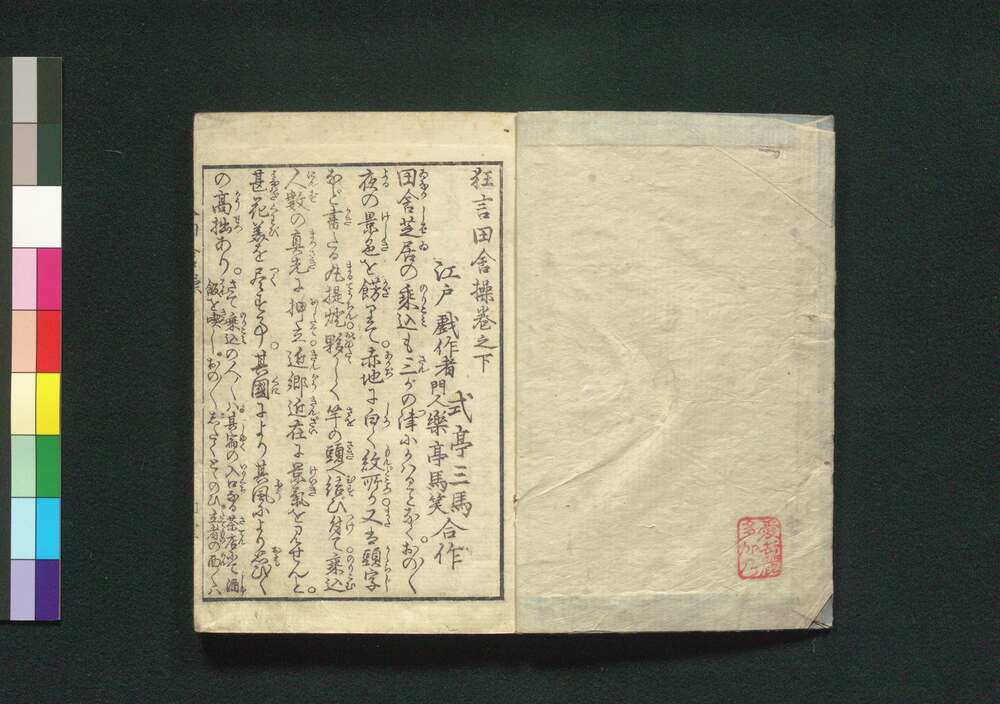 狂言田舎操巻之下
江戸戯作者 式亭三馬
門人 樂亭馬笑 合作
田舎芝居の乗込も三ヶの津にかはることなくおの〱
夜の景色を餝りて赤地に白く紋所又は頭字
など書たる丸提燈夥しく竿の頭へ結び付て乗込
人数の真先に押立近郷近在に景氣を見せんと
甚花美を尽す事其國により其風によりおもひ〱
の高拙あり。さて乗込の人〱は其宿の入口なる茶店にて酒
飯を喫し。おの〱